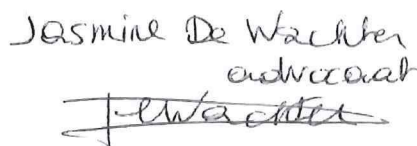 Jasmine De Wachter
advocaat
JDeWachter